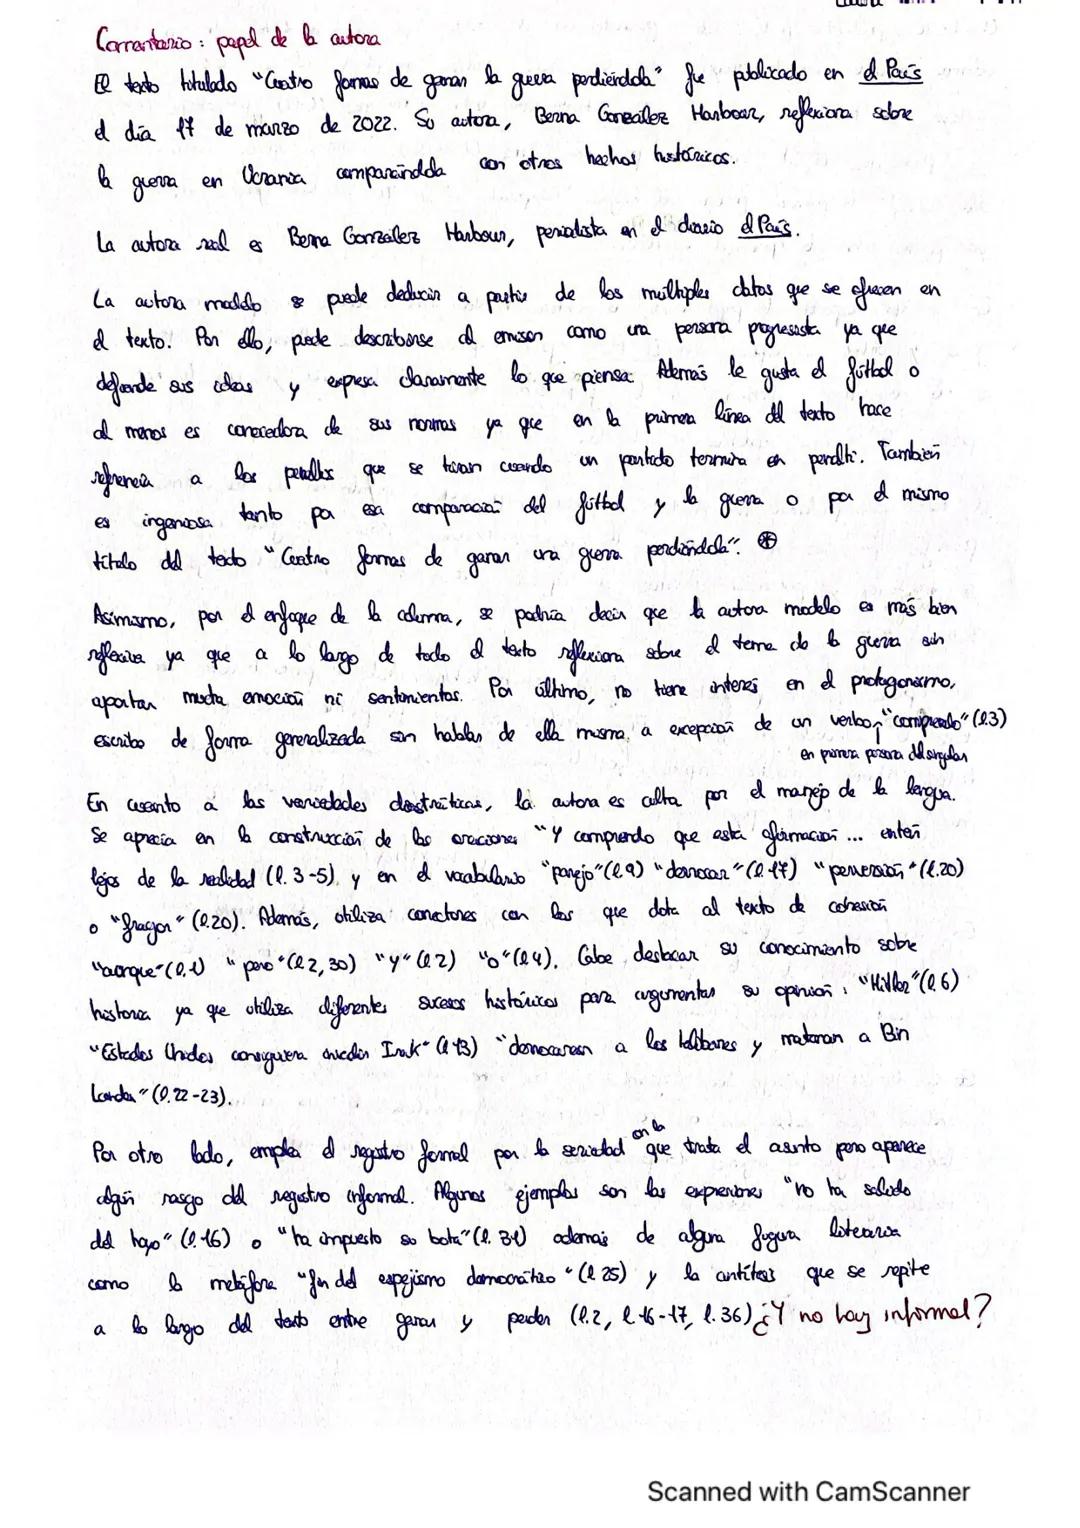 Comentario: papel de la autora
El texto titulado "Cuatro formas de ganar la guerra perdiéndola" fue publicado en el País
el día 17 de marzo de 2022. Su autora, Berna González Harbour, reflexiona sobre
la guerra en Ucrania comparándola con otros hechos históricos.
La autora real es Berna González Harbour, periodista en el diario el País.
La autora modelo se puede deducir a partir de los múltiples datos que se ofrecen en
el texto. Por ello, puede describirse al emisor como una persona progresista ya que
defiende sus ideas y expresa claramente lo que piensa. Además le gusta el fútbol o
al menos es conocedora de sus normas ya que en la primera línea del texto hace
referencia a los penaltis que se tiran cuando un partido termina en penalti. También
es ingeniosa tanto por esa comparación del fútbol y la guerra o por el mismo
título del texto "Cuatro formas de ganar una guerra perdiéndola". *
Asimismo, por el enfoque de la columna, se podría decir que la autora modelo es más bien
reflexiva ya que a lo largo de todo el texto reflexiona sobre el tema de la guerra sin
aportar mucha emoción ni sentimientos. Por último, no tiene interés en el protagonismo,
escribe de forma generalizada sin hablar de ella misma, a excepción de un verbo, "comprendo" (l.3)
en primera persona del singular
En cuanto a las variedades diastráticas, la autora es culta por el manejo de la lengua.
Se aprecia en la construcción de las oraciones "Y comprendo que esta afirmación ... entera
lejos de la realidad (l. 3-5), y en el vocabulario "parejo" (l.9) "derrocar" (l.17) "perversión" (l.20)
o "fragor" (l.20). Además, utiliza conectores con los que dota al texto de cohesión
"aunque" (l.1) "pero" (l.2, 30) "y" (l.2) "o" (l.4). Cabe destacar su conocimiento sobre
historia ya que utiliza diferentes sucesos históricos para argumentar su opinión: "Hitler" (l.6)
"Estados Unidos consiguiera invadir Irak" (l.13) "derrocaran a los talibanes y mataran a Bin
Laden" (l.22-23).
en la
Por otro lado, emplea el registro formal por la seriedad que trata el asunto pero aparece
algún rasgo del registro informal. Algunos ejemplos son las expresiones "no ha salido
del hoyo" (l.16) o "ha impuesto su bota" (l. 31) además de alguna figura literaria
como la metáfora "fin del espejismo democrático" (l.25) y la antítesis que se repite
a lo largo del texto entre ganar y perder (l.2, l.16-17, l.36) ¿Y no hay informal?
Scanned with CamScanner